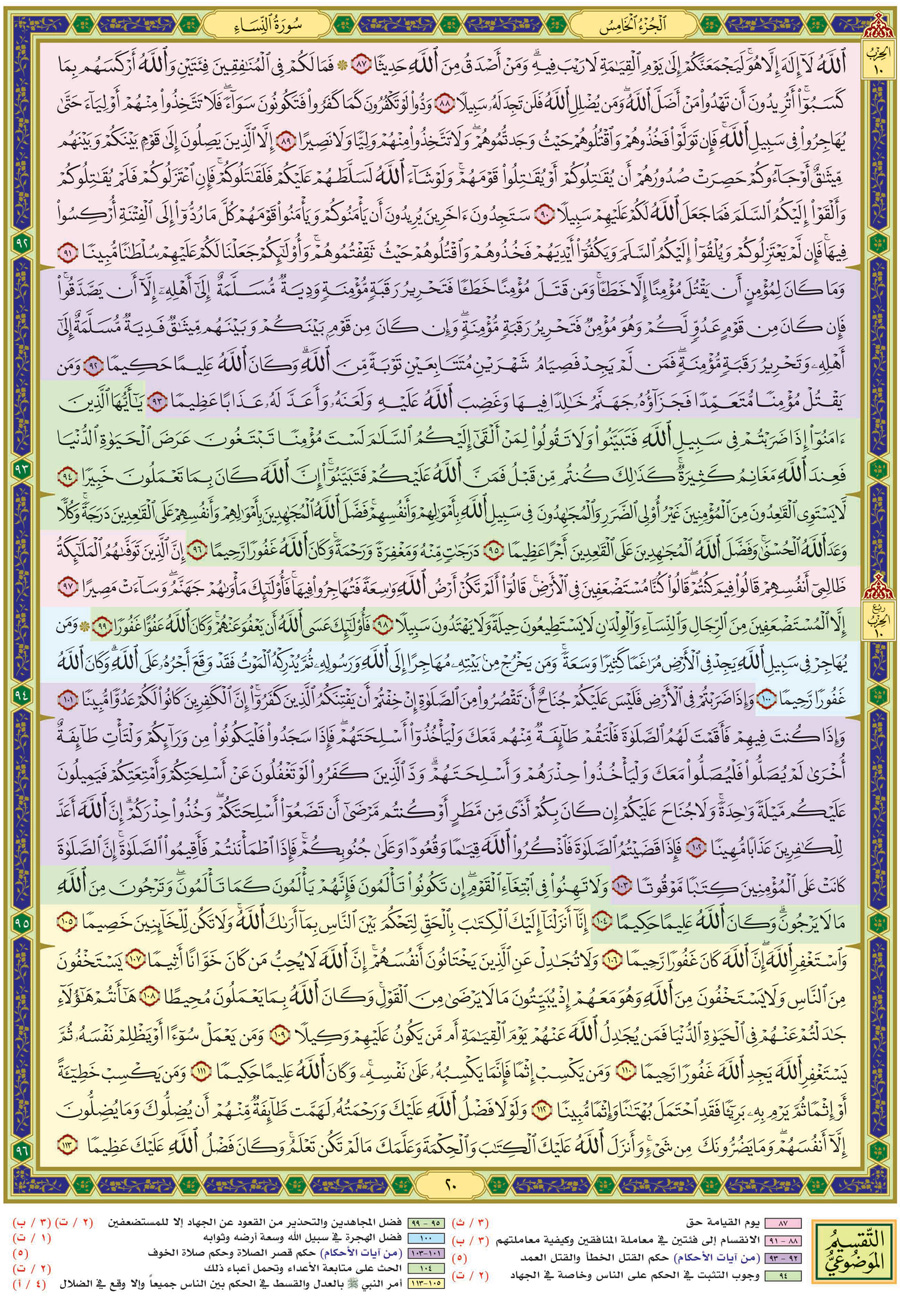 الجزء الخامس
سورة النساء
الحزب ١٠
ٱللَّهُ لَآ إِلَٰهَ إِلَّا هُوَۚ لَيَجْمَعَنَّكُمْ إِلَىٰ يَوْمِ ٱلْقِيَٰمَةِ لَا رَيْبَ فِيهِۗ وَمَنْ أَصْدَقُ مِنَ ٱللَّهِ حَدِيثًا ٨٧ ۞ فَمَا لَكُمْ فِى ٱلْمُنَٰفِقِينَ فِئَتَيْنِ وَٱللَّهُ أَرْكَسَهُم بِمَا
كَسَبُوٓا۟ۚ أَتُرِيدُونَ أَن تَهْدُوا۟ مَنْ أَضَلَّ ٱللَّهُۖ وَمَن يُضْلِلِ ٱللَّهُ فَلَن تَجِدَ لَهُۥ سَبِيلًا ٨٨ وَدُّوا۟ لَوْ تَكْفُرُونَ كَمَا كَفَرُوا۟ فَتَكُونُونَ سَوَآءًۖ فَلَا تَتَّخِذُوا۟ مِنْهُمْ أَوْلِيَآءَ حَتَّىٰ
يُهَاجِرُوا۟ فِى سَبِيلِ ٱللَّهِۚ فَإِن تَوَلَّوْا۟ فَخُذُوهُمْ وَٱقْتُلُوهُمْ حَيْثُ وَجَدتُّمُوهُمْۖ وَلَا تَتَّخِذُوا۟ مِنْهُمْ وَلِيًّا وَلَا نَصِيرًا ٨٩ إِلَّا ٱلَّذِينَ يَصِلُونَ إِلَىٰ قَوْمٍۭ بَيْنَكُمْ وَبَيْنَهُم
مِّيثَٰقٌ أَوْ جَآءُوكُمْ حَصِرَتْ صُدُورُهُمْ أَن يُقَٰتِلُوكُمْ أَوْ يُقَٰتِلُوا۟ قَوْمَهُمْۚ وَلَوْ شَآءَ ٱللَّهُ لَسَلَّطَهُمْ عَلَيْكُمْ فَلَقَٰتَلُوكُمْۚ فَإِنِ ٱعْتَزَلُوكُمْ فَلَمْ يُقَٰتِلُوكُمْ
وَأَلْقَوْا۟ إِلَيْكُمُ ٱلسَّلَمَ فَمَا جَعَلَ ٱللَّهُ لَكُمْ عَلَيْهِمْ سَبِيلًا ٩٠ سَتَجِدُونَ ءَاخَرِينَ يُرِيدُونَ أَن يَأْمَنُوكُمْ وَيَأْمَنُوا۟ قَوْمَهُمْ كُلَّ مَا رُدُّوٓا۟ إِلَى ٱلْفِتْنَةِ أُرْكِسُوا۟
فِيهَاۚ فَإِن لَّمْ يَعْتَزِلُوكُمْ وَيُلْقُوٓا۟ إِلَيْكُمُ ٱلسَّلَمَ وَيَكُفُّوٓا۟ أَيْدِيَهُمْ فَخُذُوهُمْ وَٱقْتُلُوهُمْ حَيْثُ ثَقِفْتُمُوهُمْۚ وَأُو۟لَٰٓئِكُمْ جَعَلْنَا لَكُمْ عَلَيْهِمْ سُلْطَٰنًا مُّبِينًا ٩١
٩٢
وَمَا كَانَ لِمُؤْمِنٍ أَن يَقْتُلَ مُؤْمِنًا إِلَّا خَطَـًٔاۚ وَمَن قَتَلَ مُؤْمِنًا خَطَـًٔا فَتَحْرِيرُ رَقَبَةٍ مُّؤْمِنَةٍ وَدِيَةٌ مُّسَلَّمَةٌ إِلَىٰٓ أَهْلِهِۦٓ إِلَّآ أَن يَصَّدَّقُوا۟ۚ
فَإِن كَانَ مِن قَوْمٍ عَدُوٍّ لَّكُمْ وَهُوَ مُؤْمِنٌ فَتَحْرِيرُ رَقَبَةٍ مُّؤْمِنَةٍۖ وَإِن كَانَ مِن قَوْمٍۭ بَيْنَكُمْ وَبَيْنَهُم مِّيثَٰقٌ فَدِيَةٌ مُّسَلَّمَةٌ إِلَىٰٓ
أَهْلِهِۦ وَتَحْرِيرُ رَقَبَةٍ مُّؤْمِنَةٍۖ فَمَن لَّمْ يَجِدْ فَصِيَامُ شَهْرَيْنِ مُتَتَابِعَيْنِ تَوْبَةً مِّنَ ٱللَّهِۗ وَكَانَ ٱللَّهُ عَلِيمًا حَكِيمًا ٩٢ وَمَن
يَقْتُلْ مُؤْمِنًا مُّتَعَمِّدًا فَجَزَآؤُهُۥ جَهَنَّمُ خَٰلِدًا فِيهَا وَغَضِبَ ٱللَّهُ عَلَيْهِ وَلَعَنَهُۥ وَأَعَدَّ لَهُۥ عَذَابًا عَظِيمًا ٩٣ يَٰٓأَيُّهَا ٱلَّذِينَ
ءَامَنُوٓا۟ إِذَا ضَرَبْتُمْ فِى سَبِيلِ ٱللَّهِ فَتَبَيَّنُوا۟ وَلَا تَقُولُوا۟ لِمَنْ أَلْقَىٰٓ إِلَيْكُمُ ٱلسَّلَٰمَ لَسْتَ مُؤْمِنًا تَبْتَغُونَ عَرَضَ ٱلْحَيَوٰةِ ٱلدُّنْيَا
فَعِندَ ٱللَّهِ مَغَانِمُ كَثِيرَةٌۚ كَذَٰلِكَ كُنتُم مِّن قَبْلُ فَمَنَّ ٱللَّهُ عَلَيْكُمْ فَتَبَيَّنُوٓا۟ۚ إِنَّ ٱللَّهَ كَانَ بِمَا تَعْمَلُونَ خَبِيرًا ٩٤
٩٣
لَّا يَسْتَوِى ٱلْقَٰعِدُونَ مِنَ ٱلْمُؤْمِنِينَ غَيْرُ أُو۟لِى ٱلضَّرَرِ وَٱلْمُجَٰهِدُونَ فِى سَبِيلِ ٱللَّهِ بِأَمْوَٰلِهِمْ وَأَنفُسِهِمْۚ فَضَّلَ ٱللَّهُ ٱلْمُجَٰهِدِينَ بِأَمْوَٰلِهِمْ وَأَنفُسِهِمْ عَلَى ٱلْقَٰعِدِينَ دَرَجَةًۚ وَكُلًّا
وَعَدَ ٱللَّهُ ٱلْحُسْنَىٰۚ وَفَضَّلَ ٱللَّهُ ٱلْمُجَٰهِدِينَ عَلَى ٱلْقَٰعِدِينَ أَجْرًا عَظِيمًا ٩٥ دَرَجَٰتٍ مِّنْهُ وَمَغْفِرَةً وَرَحْمَةًۚ وَكَانَ ٱللَّهُ غَفُورًا رَّحِيمًا ٩٦ إِنَّ ٱلَّذِينَ تَوَفَّىٰهُمُ ٱلْمَلَٰٓئِكَةُ
ظَالِمِىٓ أَنفُسِهِمْ قَالُوا۟ فِيمَ كُنتُمْۖ قَالُوا۟ كُنَّا مُسْتَضْعَفِينَ فِى ٱلْأَرْضِۚ قَالُوٓا۟ أَلَمْ تَكُنْ أَرْضُ ٱللَّهِ وَٰسِعَةً فَتُهَاجِرُوا۟ فِيهَاۚ فَأُو۟لَٰٓئِكَ مَأْوَىٰهُمْ جَهَنَّمُۖ وَسَآءَتْ مَصِيرًا ٩٧
ربع الحزب ١٠
إِلَّا ٱلْمُسْتَضْعَفِينَ مِنَ ٱلرِّجَالِ وَٱلنِّسَآءِ وَٱلْوِلْدَٰنِ لَا يَسْتَطِيعُونَ حِيلَةً وَلَا يَهْتَدُونَ سَبِيلًا ٩٨ فَأُو۟لَٰٓئِكَ عَسَى ٱللَّهُ أَن يَعْفُوَ عَنْهُمْۚ وَكَانَ ٱللَّهُ عَفُوًّا غَفُورًا ٩٩ ۞ وَمَن
يُهَاجِرْ فِى سَبِيلِ ٱللَّهِ يَجِدْ فِى ٱلْأَرْضِ مُرَٰغَمًا كَثِيرًا وَسَعَةًۚ وَمَن يَخْرُجْ مِنۢ بَيْتِهِۦ مُهَاجِرًا إِلَى ٱللَّهِ وَرَسُولِهِۦ ثُمَّ يُدْرِكْهُ ٱلْمَوْتُ فَقَدْ وَقَعَ أَجْرُهُۥ عَلَى ٱللَّهِۗ وَكَانَ ٱللَّهُ
غَفُورًا رَّحِيمًا ١٠٠ وَإِذَا ضَرَبْتُمْ فِى ٱلْأَرْضِ فَلَيْسَ عَلَيْكُمْ جُنَاحٌ أَن تَقْصُرُوا۟ مِنَ ٱلصَّلَوٰةِ إِنْ خِفْتُمْ أَن يَفْتِنَكُمُ ٱلَّذِينَ كَفَرُوٓا۟ۚ إِنَّ ٱلْكَٰفِرِينَ كَانُوا۟ لَكُمْ عَدُوًّا مُّبِينًا ١٠١
٩٤
وَإِذَا كُنتَ فِيهِمْ فَأَقَمْتَ لَهُمُ ٱلصَّلَوٰةَ فَلْتَقُمْ طَآئِفَةٌ مِّنْهُم مَّعَكَ وَلْيَأْخُذُوٓا۟ أَسْلِحَتَهُمْۖ فَإِذَا سَجَدُوا۟ فَلْيَكُونُوا۟ مِن وَرَآئِكُمْ وَلْتَأْتِ طَآئِفَةٌ
أُخْرَىٰ لَمْ يُصَلُّوا۟ فَلْيُصَلُّوا۟ مَعَكَ وَلْيَأْخُذُوا۟ حِذْرَهُمْ وَأَسْلِحَتَهُمْۗ وَدَّ ٱلَّذِينَ كَفَرُوا۟ لَوْ تَغْفُلُونَ عَنْ أَسْلِحَتِكُمْ وَأَمْتِعَتِكُمْ فَيَمِيلُونَ
عَلَيْكُم مَّيْلَةً وَٰحِدَةًۚ وَلَا جُنَاحَ عَلَيْكُمْ إِن كَانَ بِكُمْ أَذًى مِّن مَّطَرٍ أَوْ كُنتُم مَّرْضَىٰٓ أَن تَضَعُوٓا۟ أَسْلِحَتَكُمْۖ وَخُذُوا۟ حِذْرَكُمْۗ إِنَّ ٱللَّهَ أَعَدَّ
لِلْكَٰفِرِينَ عَذَابًا مُّهِينًا ١٠٢ فَإِذَا قَضَيْتُمُ ٱلصَّلَوٰةَ فَٱذْكُرُوا۟ ٱللَّهَ قِيَٰمًا وَقُعُودًا وَعَلَىٰ جُنُوبِكُمْۚ فَإِذَا ٱطْمَأْنَنتُمْ فَأَقِيمُوا۟ ٱلصَّلَوٰةَۚ إِنَّ ٱلصَّلَوٰةَ
كَانَتْ عَلَى ٱلْمُؤْمِنِينَ كِتَٰبًا مَّوْقُوتًا ١٠٣ وَلَا تَهِنُوا۟ فِى ٱبْتِغَآءِ ٱلْقَوْمِۖ إِن تَكُونُوا۟ تَأْلَمُونَ فَإِنَّهُمْ يَأْلَمُونَ كَمَا تَأْلَمُونَۖ وَتَرْجُونَ مِنَ ٱللَّهِ
مَا لَا يَرْجُونَۗ وَكَانَ ٱللَّهُ عَلِيمًا حَكِيمًا ١٠٤ إِنَّآ أَنزَلْنَآ إِلَيْكَ ٱلْكِتَٰبَ بِٱلْحَقِّ لِتَحْكُمَ بَيْنَ ٱلنَّاسِ بِمَآ أَرَىٰكَ ٱللَّهُۚ وَلَا تَكُن لِّلْخَآئِنِينَ خَصِيمًا ١٠٥
٩٥
وَٱسْتَغْفِرِ ٱللَّهَۖ إِنَّ ٱللَّهَ كَانَ غَفُورًا رَّحِيمًا ١٠٦ وَلَا تُجَٰدِلْ عَنِ ٱلَّذِينَ يَخْتَانُونَ أَنفُسَهُمْۚ إِنَّ ٱللَّهَ لَا يُحِبُّ مَن كَانَ خَوَّانًا أَثِيمًا ١٠٧ يَسْتَخْفُونَ
مِنَ ٱلنَّاسِ وَلَا يَسْتَخْفُونَ مِنَ ٱللَّهِ وَهُوَ مَعَهُمْ إِذْ يُبَيِّتُونَ مَا لَا يَرْضَىٰ مِنَ ٱلْقَوْلِۚ وَكَانَ ٱللَّهُ بِمَا يَعْمَلُونَ مُحِيطًا ١٠٨ هَٰٓأَنتُمْ هَٰٓؤُلَآءِ
جَٰدَلْتُمْ عَنْهُمْ فِى ٱلْحَيَوٰةِ ٱلدُّنْيَا فَمَن يُجَٰدِلُ ٱللَّهَ عَنْهُمْ يَوْمَ ٱلْقِيَٰمَةِ أَم مَّن يَكُونُ عَلَيْهِمْ وَكِيلًا ١٠٩ وَمَن يَعْمَلْ سُوٓءًا أَوْ يَظْلِمْ نَفْسَهُۥ ثُمَّ
يَسْتَغْفِرِ ٱللَّهَ يَجِدِ ٱللَّهَ غَفُورًا رَّحِيمًا ١١٠ وَمَن يَكْسِبْ إِثْمًا فَإِنَّمَا يَكْسِبُهُۥ عَلَىٰ نَفْسِهِۦۚ وَكَانَ ٱللَّهُ عَلِيمًا حَكِيمًا ١١١ وَمَن يَكْسِبْ خَطِيٓـَٔةً
أَوْ إِثْمًا ثُمَّ يَرْمِ بِهِۦ بَرِيٓـًٔا فَقَدِ ٱحْتَمَلَ بُهْتَٰنًا وَإِثْمًا مُّبِينًا ١١٢ وَلَوْلَا فَضْلُ ٱللَّهِ عَلَيْكَ وَرَحْمَتُهُۥ لَهَمَّت طَّآئِفَةٌ مِّنْهُمْ أَن يُضِلُّوكَ وَمَا يُضِلُّونَ
إِلَّآ أَنفُسَهُمْۖ وَمَا يَضُرُّونَكَ مِن شَىْءٍۚ وَأَنزَلَ ٱللَّهُ عَلَيْكَ ٱلْكِتَٰبَ وَٱلْحِكْمَةَ وَعَلَّمَكَ مَا لَمْ تَكُن تَعْلَمُۚ وَكَانَ فَضْلُ ٱللَّهِ عَلَيْكَ عَظِيمًا ١١٣
٩٦
٢٠
التقسيم الموضوعي
٨٧ يوم القيامة حق (٣ / ث)
٨٨ - ٩١ الانقسام إلى فئتين في معاملة المنافقين وكيفية معاملتهم (٣ / ب)
٩٢ - ٩٣ (من آيات الأحكام) حكم القتل الخطأ والقتل العمد (٥)
٩٤ وجوب التثبت في الحكم على الناس وخاصة في الجهاد (٢ / ت)
٩٥ - ٩٩ فضل المجاهدين والتحذير من القعود عن الجهاد إلا للمستضعفين (٢ / ت) (٣ / ب)
١٠٠ فضل الهجرة في سبيل الله وسعة أرضه وثوابه (١ / ت)
١٠١-١٠٣ (من آيات الأحكام) حكم قصر الصلاة وحكم صلاة الخوف (٥)
١٠٤ الحث على متابعة الأعداء وتحمل أعباء ذلك (٢ / ت)
١٠٥-١١٣ أمر النبي ﷺ بالعدل والقسط في الحكم بين الناس جميعاً وإلا وقع في الضلال (٤ / أ)